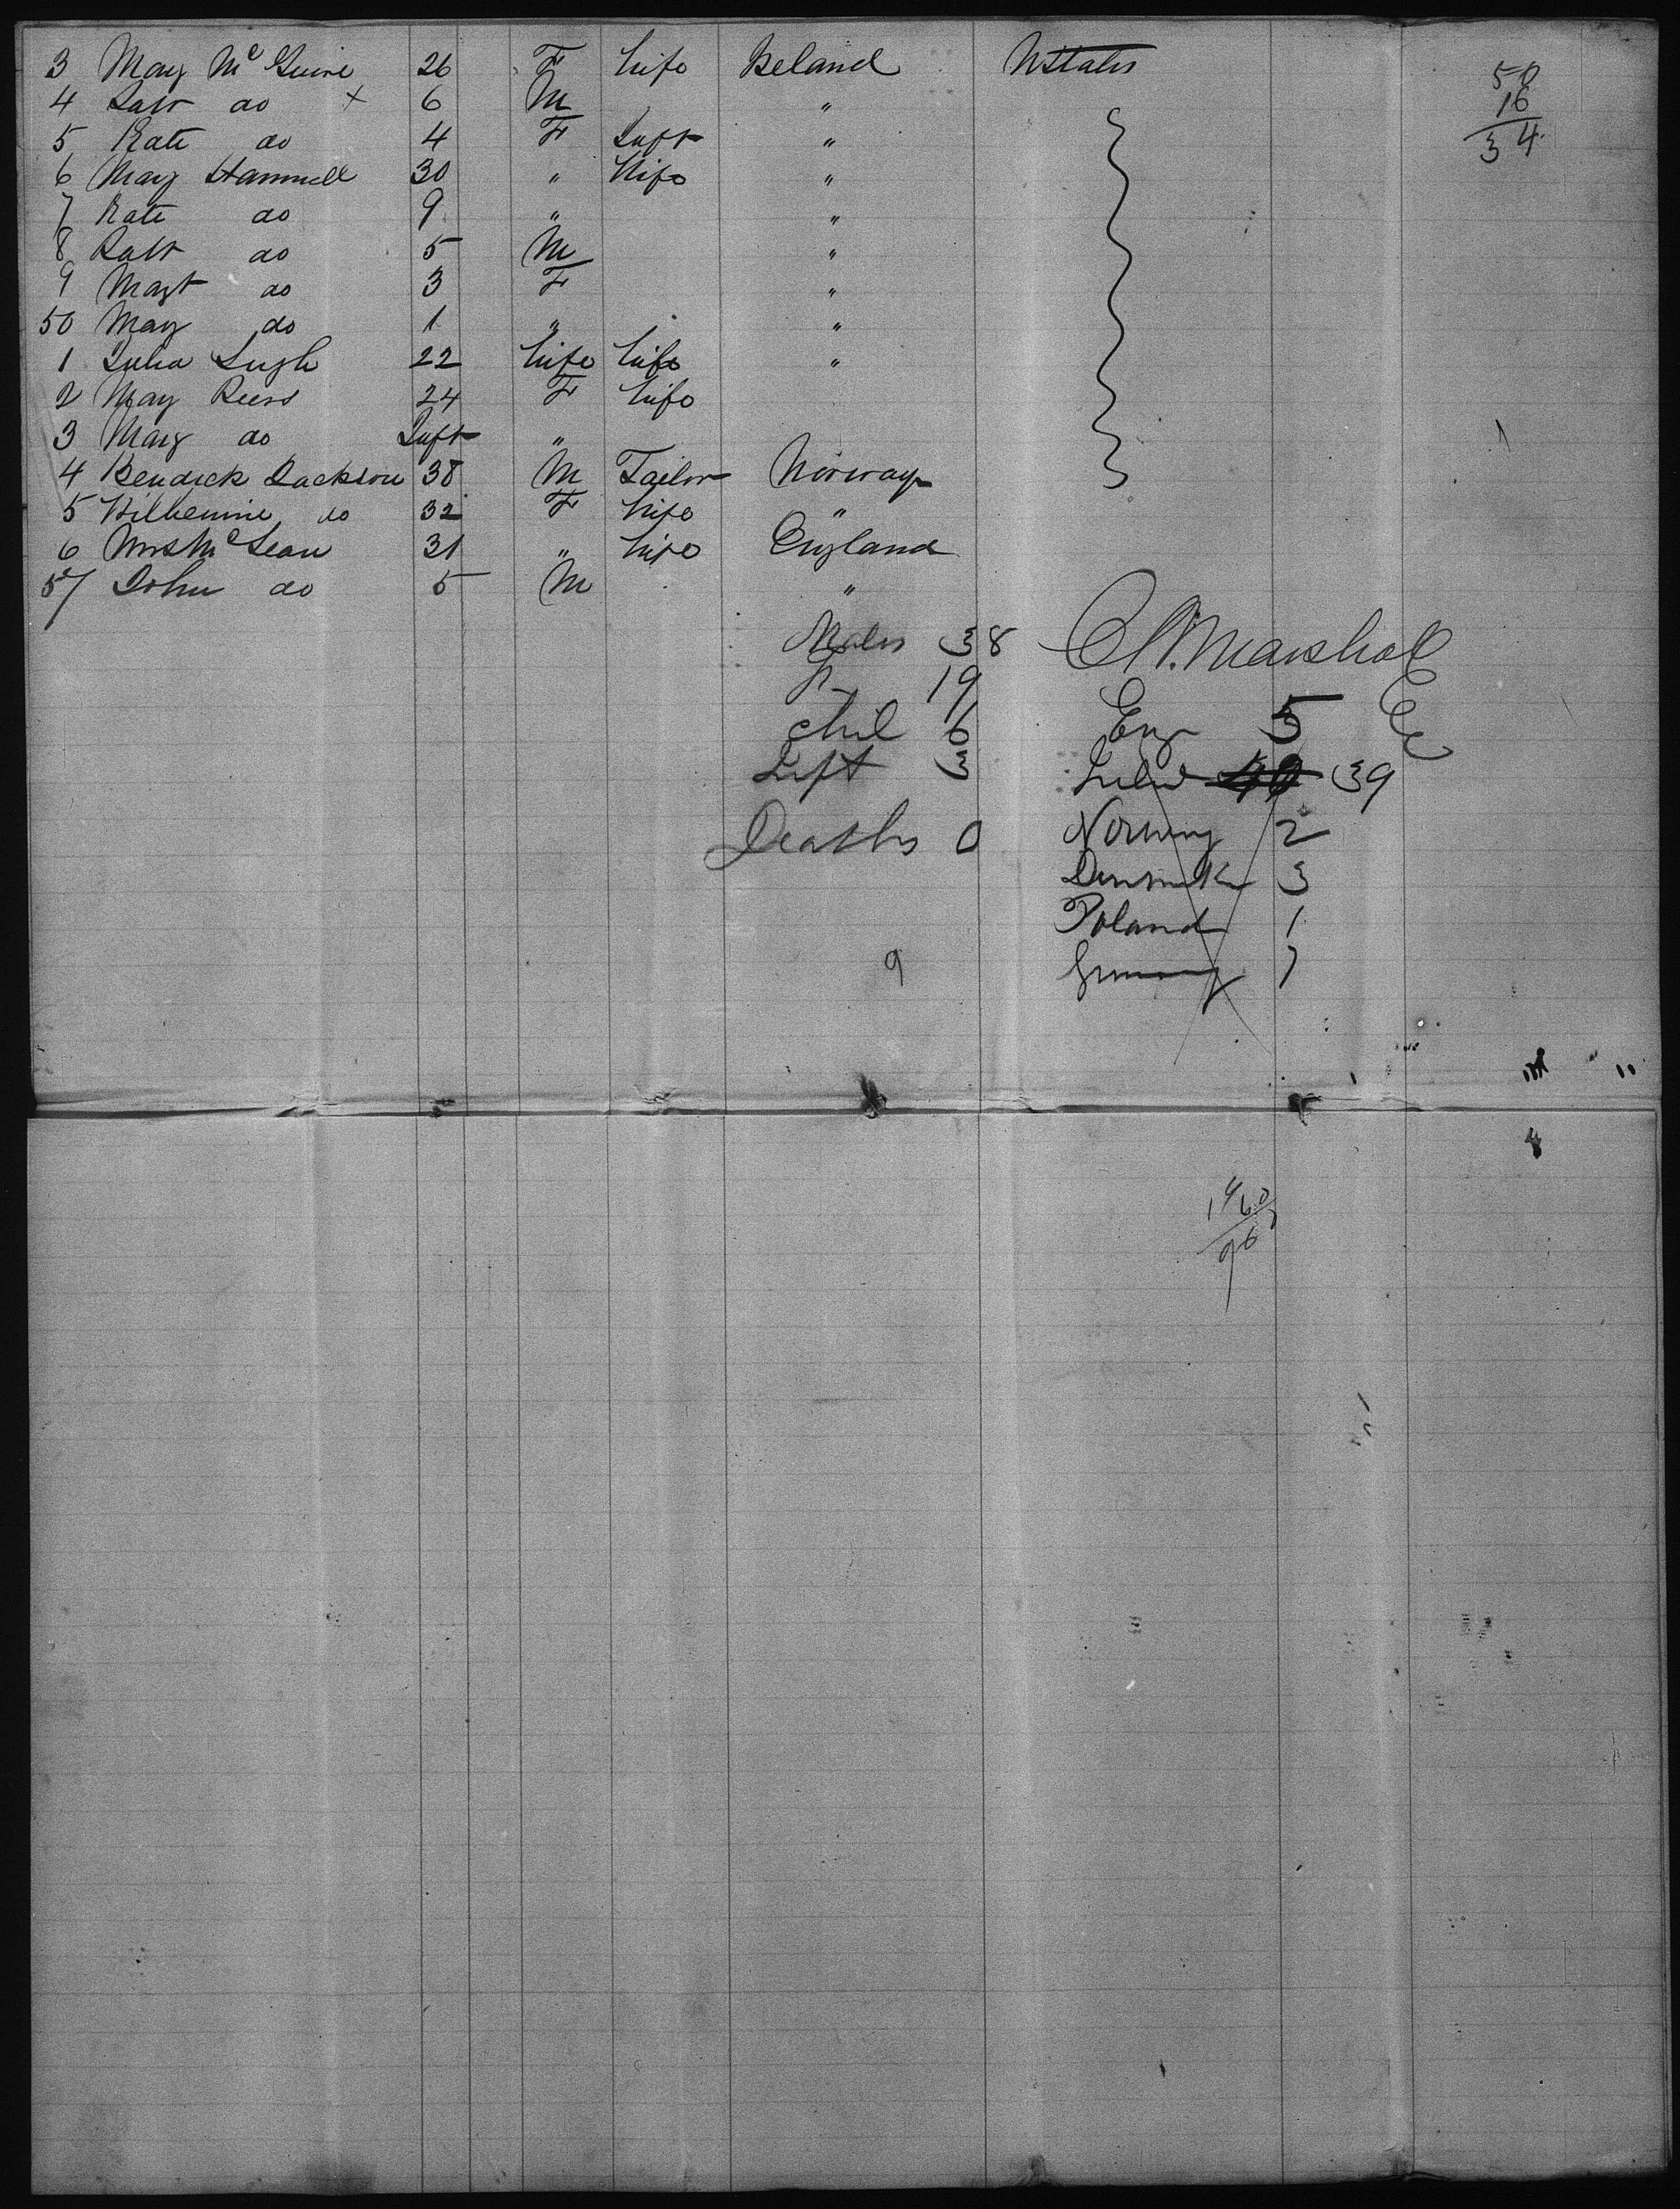 3 Mary McGuire 26 F Wife Ireland UStates
4 Patr do x 6 M "
5 Kate do 4 F Inft "
6 Mary Hammell 30 " Wife "
7 Kate do 9 " "
8 Patr do 5 M "
9 Magt do 3 F "
50 Mary do 1 " "
1 Julia 22 Wife Wife "
2 Mary 24 F Wife
3 Mary do Inft "
4 Bendick Jackson 38 M Tailor Norway
5 Wilhemine do 32 F Wife "
6 Mrs McLean 31 " Wife England
57 John do 5 M "
50
16
34
Males 38
F 19
Chil 6
Inft 3
Deaths 0
Marshall
Eng 5
Irelnd 40 39
Norway 2
Denmark 3
Poland 1
Germany 7
9